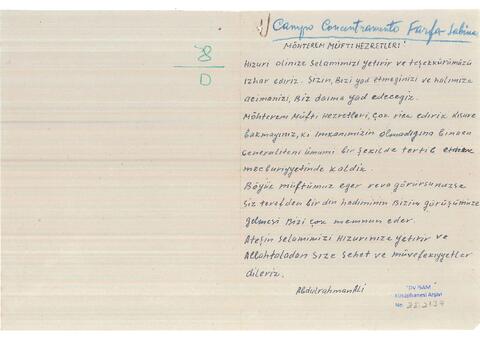 8
D
1) Campo Concentramento Farfa Sabina
MÖHTEREM MÜFTİ HEZRETLERİ!
Hizuri alinize Selamimizi yetirir ve teşekkürümüzü
izhar ediriz. Sizin, Bizi yad etmeginizi ve halimize
acimanizi, Biz daima yad edecegiz.
Möhterem Müfti Hezretleri, Çok rica ederik kisure
bakmayiniz, ki imkanimizin olmadigina binaen
Generaliteni umumi bir şekilde tertib etmek
mecburiyyetinde kaldik.
Böyük müftümüz eger reva görürsunuzse
Siz terefden bir din hadiminin Bizim görüşümüze
gelmesi Bizi çok memnun eder.
Ateşin Selamimizi Hizurinize yetirir ve
Allahtaladan Size Sehet ve müvefekiyyetler
dileriz.
Abdulrahman Ali
TDV İSAM
Kütüphanesi Arşivi
No.